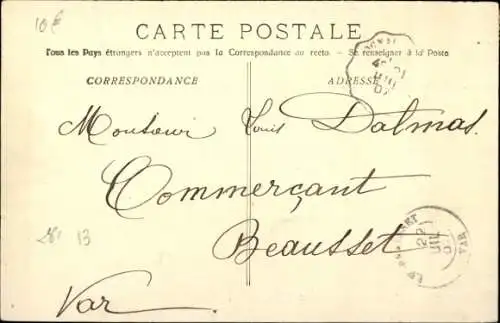 10€
CARTE POSTALE
Tous les Pays étrangers n'acceptent pas la Correspondance au recto. - Se renseigner à la Poste
CORRESPONDANCE
ADRESSE
Monsieur Louis Dalmas.
Commerçant
Beausset
N° 13
Var
22
VAR